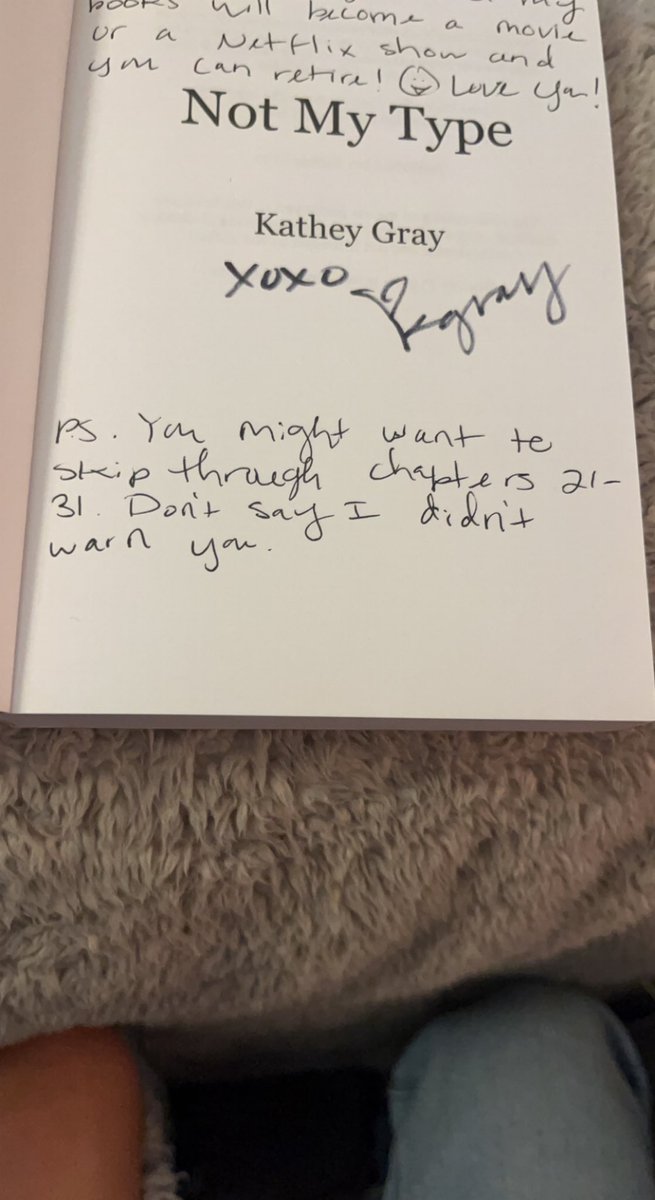 books will become a movie
or a Netflix show and
you can retire! Love ya!
Not My Type
Kathey Gray
xoxo - Kgray
P.S. You might want to
skip through chapters 21-
31. Don't say I didn't
warn you.